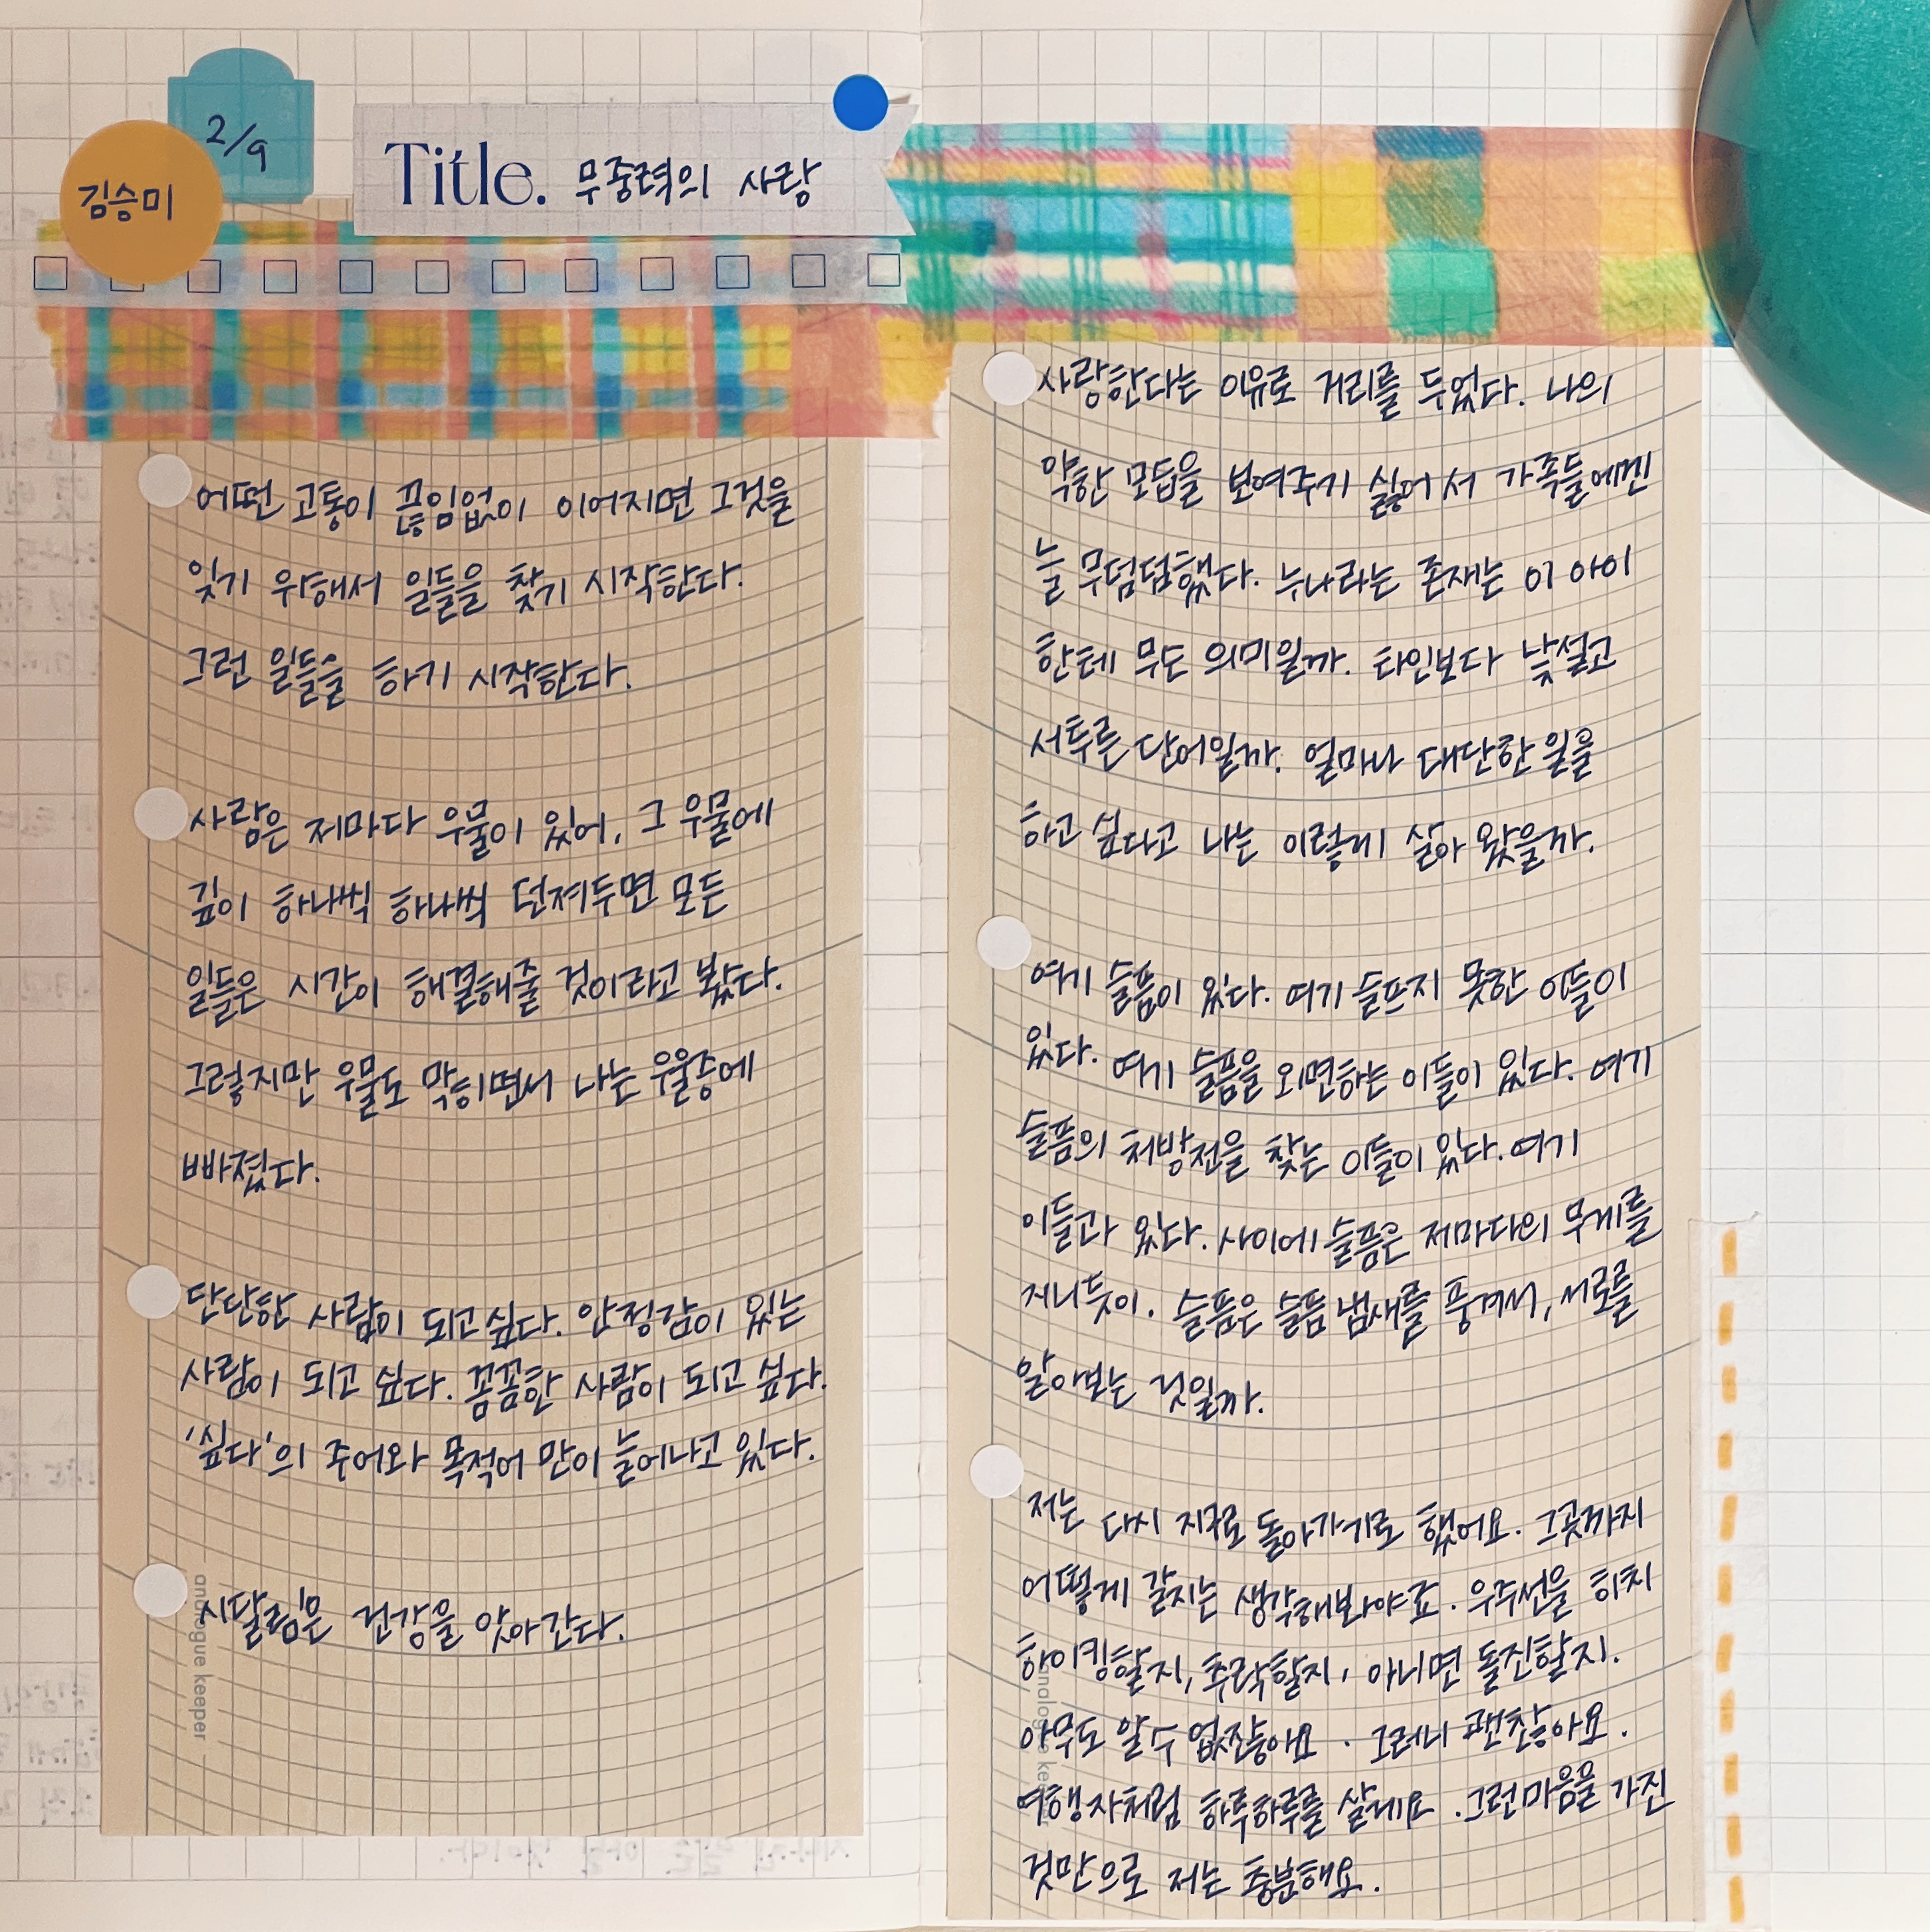 2/9
김승미
Title. 무중력의 사랑
어떤 고통이 끊임없이 이어지면 그것을
잊기 위해서 일들을 찾기 시작한다.
그런 일들을 하기 시작한다.
사람은 저마다 우물이 있어, 그 우물에
깊이 하나씩 하나씩 던져두면 모든
일들은 시간이 해결해줄 것이라고 봤다.
그렇지만 우물도 막히면서 나는 우울증에
빠졌다.
단단한 사람이 되고싶다. 안정감이 있는
사람이 되고 싶다. 꼼꼼한 사람이 되고 싶다.
'싶다'의 주어와 목적어 만이 늘어나고 있다.
시달림은 건강을 앗아간다.
analogue keeper
사랑한다는 이유로 거리를 두었다. 나의
약한 모습을 보여주기 싫어서 가족들에겐
늘 무덤덤했다. 누나라는 존재는 이 아이
한테 무슨 의미일까. 타인보다 낯설고
서투른 단어일까. 얼마나 대단한 일을
하고 싶다고 나는 이렇게 살아 왔을까.
여기 슬픔이 있다. 여기 슬프지 못한 이들이
있다. 여기 슬픔을 외면하는 이들이 있다. 여기
슬픔의 처방전을 찾는 이들이 있다. 여기
이들과 있다. 사이에 슬픔은 제마다의 무게를
지니듯이. 슬픔은 슬픔 냄새를 풍겨서, 서로를
알아보는 것일까.
저는 다시 지구로 돌아가기로 했어요. 그곳까지
어떻게 갈지는 생각해봐야죠. 우주선을 히치
하이킹할지, 추락할지, 아니면 돌진할지.
아무도 알 수 없잖아요. 그러니 괜찮아요.
여행자처럼 하루하루를 살게요. 그런마음을 가진
것만으로 저는 충분해요.
analogue kee